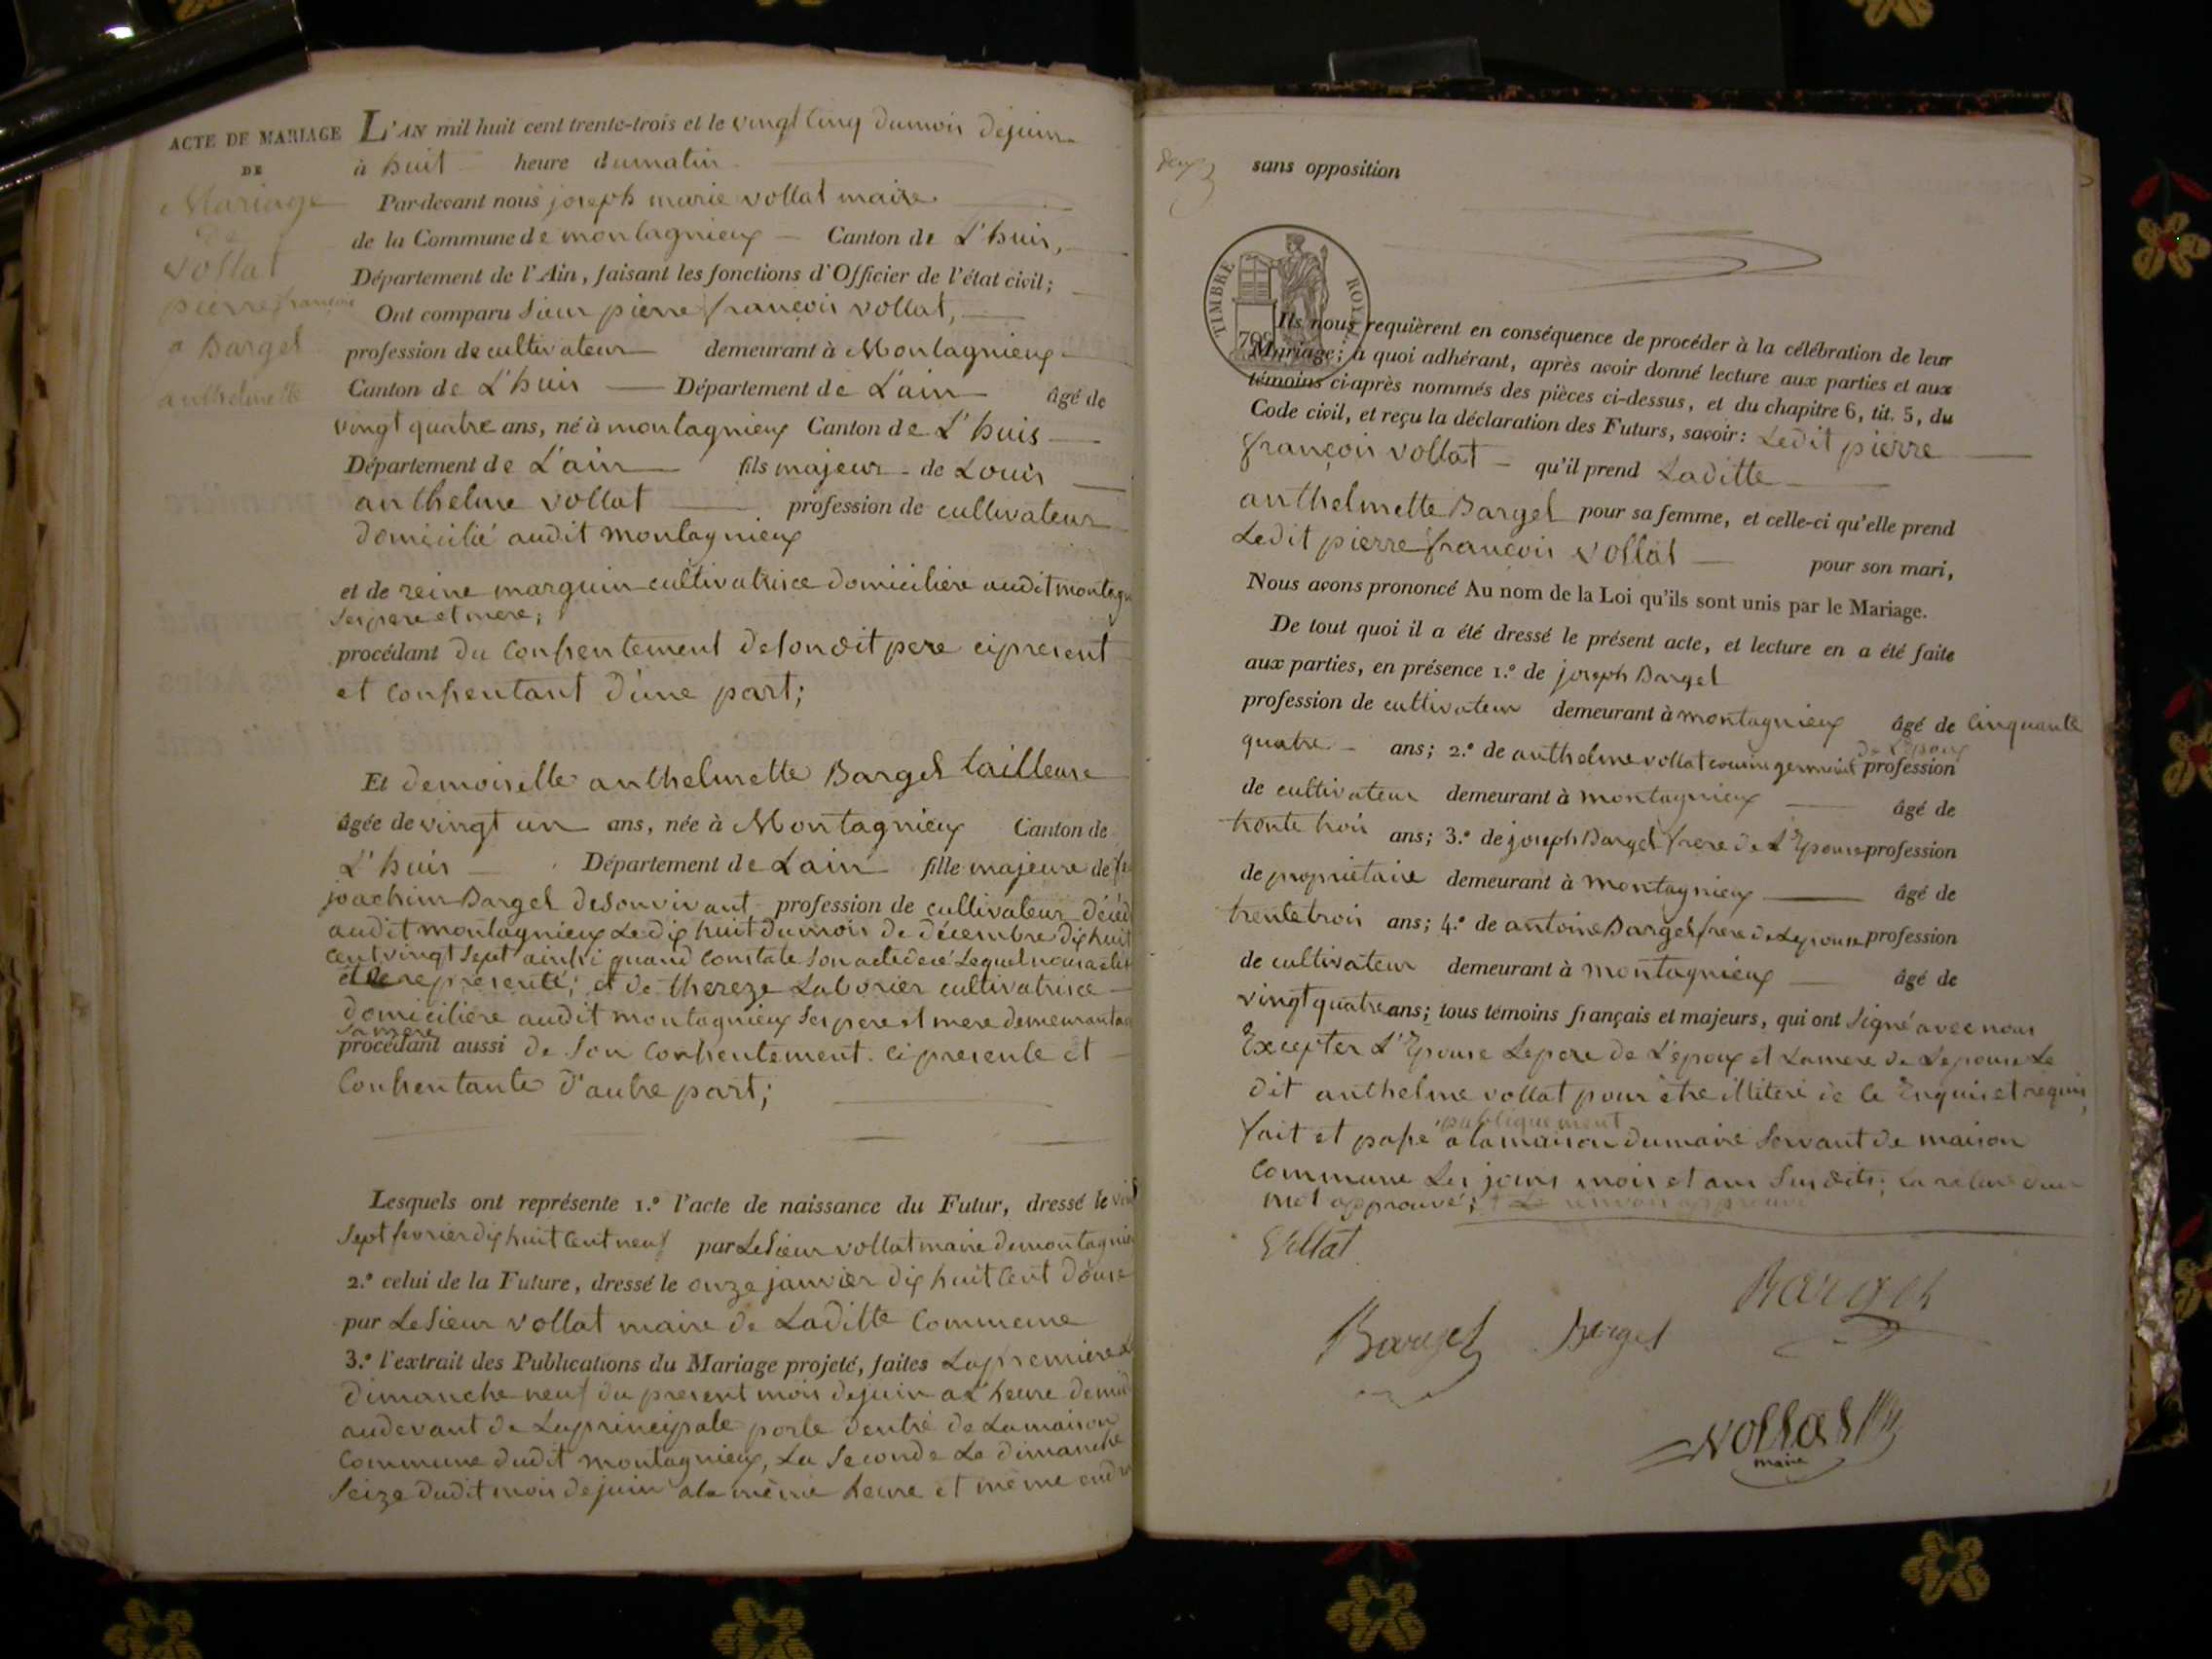 ACTE DE MARIAGE
DE
Mariage
de
Vollat
pierre françois
a Bargel
anthelmette
L'AN mil huit cent trente-trois et le vingt cinq dumois dejuin
à huit heure dumatin
Par-devant nous joseph marie vollat maire
de la Commune de montagnieux Canton de L'huis,
Département de l'Ain, faisant les fonctions d'Officier de l'état civil;
Ont comparu Sieur pierre françois vollat,
profession de cultivateur demeurant à Montagnieux
Canton de L'huis Département de L'ain âgé de
vingt quatre ans, né à montagnieux Canton de L'huis
Département de L'ain fils majeur de Louis
anthelme vollat profession de cultivateur
domicilié audit montagnieux
et de reine marguin cultivatrisce domicilière audit montagn
Ses pere et mere;
procédant du Consentement desondit pere ci present
et Consentant d'une part;
Et demoiselle anthelmette Bargel tailleuse
âgée de vingt un ans, née à Montagnieux Canton de
L'huis Département de Lain fille majeure de
joachim Bargel desonvivant profession de cultivateur décéd
audit montagnieux Le dix huit dumois de décembre dix huit
Cent vingt Sept ainsi quand Constate Son acte decé Lequel nous a
représenté; et de thereze Laborier cultivatrisce
domicilière audit montagnieux Ses pere et mere
Sa mere
procédant aussi de Son Consentement. ci presente et
Consentante d'autre part;
Lesquels ont représente 1.° l'acte de naissance du Futur, dressé le
Sept fevrier dix huit Cent neuf par Le Sieur vollat maire de montagnieu
2.° celui de la Future, dressé le onze janvier dix huit Cent douse
par Le Sieur vollat maire de Laditte Commune
3.° l'extrait des Publications du Mariage projeté, faites La premiere
dimanche neuf du present mois dejuin a L'heure de mid
audevant de La principale porte dentré de Lamaison
Commune dudit montagnieux, La Seconde Le dimanche
Seize dudit mois dejuin ala même heure et même
deux
sans opposition
TIMBRE ROYAL
Ils nous requièrent en conséquence de procéder à la célébration de leur
Mariage; à quoi adhérant, après avoir donné lecture aux parties et aux
témoins ci-après nommés des pièces ci-dessus, et du chapitre 6, tit. 5, du
Code civil, et reçu la déclaration des Futurs, savoir: Ledit pierre
françois vollat qu'il prend Laditte
anthelmette Bargel pour sa femme, et celle-ci qu'elle prend
Ledit pierre françois vollat pour son mari,
Nous avons prononcé Au nom de la Loi qu'ils sont unis par le Mariage.
De tout quoi il a été dressé le présent acte, et lecture en a été faite
aux parties, en présence 1.° de joseph Bargel
profession de cultivateur demeurant à montagnieux âgé de Cinquante
quatre ans; 2.° de anthelme vollat cousin germain de L'Epoux profession
de cultivateur demeurant à montagnieux âgé de
trente trois ans; 3.° de joseph Bargel frere de L'Epouse profession
de proprietaire demeurant à montagnieux âgé de
trente trois ans; 4.° de antoine Bargel frere de Lepouse profession
de cultivateur demeurant à montagnieux âgé de
vingt quatre ans; tous témoins français et majeurs, qui ont Signé avec nous
Excepter L'Epouse Le pere de L'epoux et La mere de Lepouse Le
dit anthelme vollat pour être illiteré de ce Enquis et requis,
publiquement
fait et passé a lamaison dumaire Servant de maison
Commune Les jours mois et ans Susdits;
mot approuvé;
Vollat
Bargel Bargel Bargel
vollat
maire